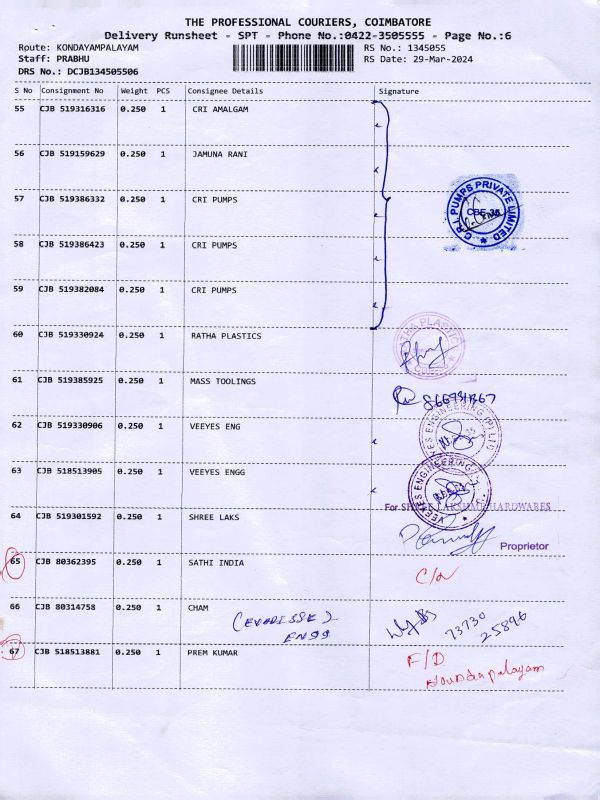 THE PROFESSIONAL COURIERS, COIMBATORE
Delivery Runsheet - SPT - Phone No.:0422-3505555 - Page No.:6
Route: KONDAYAMPALAYAM RS No.: 1345055
Staff: PRABHU RS Date: 29-Mar-2024
DRS No.: DCJB134505506
S No Consignment No Weight PCS Consignee Details Signature
55 CJB 519316316 0.250 1 CRI AMALGAM
56 CJB 519159629 0.250 1 JAMUNA RANI
57 CJB 519386332 0.250 1 CRI PUMPS
C.R.I. PUMPS PRIVATE LIMITED
58 CJB 519386423 0.250 1 CRI PUMPS
59 CJB 519382084 0.250 1 CRI PUMPS
60 CJB 519330924 0.250 1 RATHA PLASTICS
61 CJB 519385925 0.250 1 MASS TOOLINGS
62 CJB 519330906 0.250 1 VEEYES ENG
63 CJB 518513905 0.250 1 VEEYES ENGG
VEEYES ENGINEERING
64 CJB 519301592 0.250 1 SHREE LAKS
For SHREE LAKSHMI HARDWARES
Proprietor
65 CJB 80362395 0.250 1 SATHI INDIA
66 CJB 80314758 0.250 1 CHAM
73730
25896
67 CJB 518513881 0.250 1 PREM KUMAR F/D